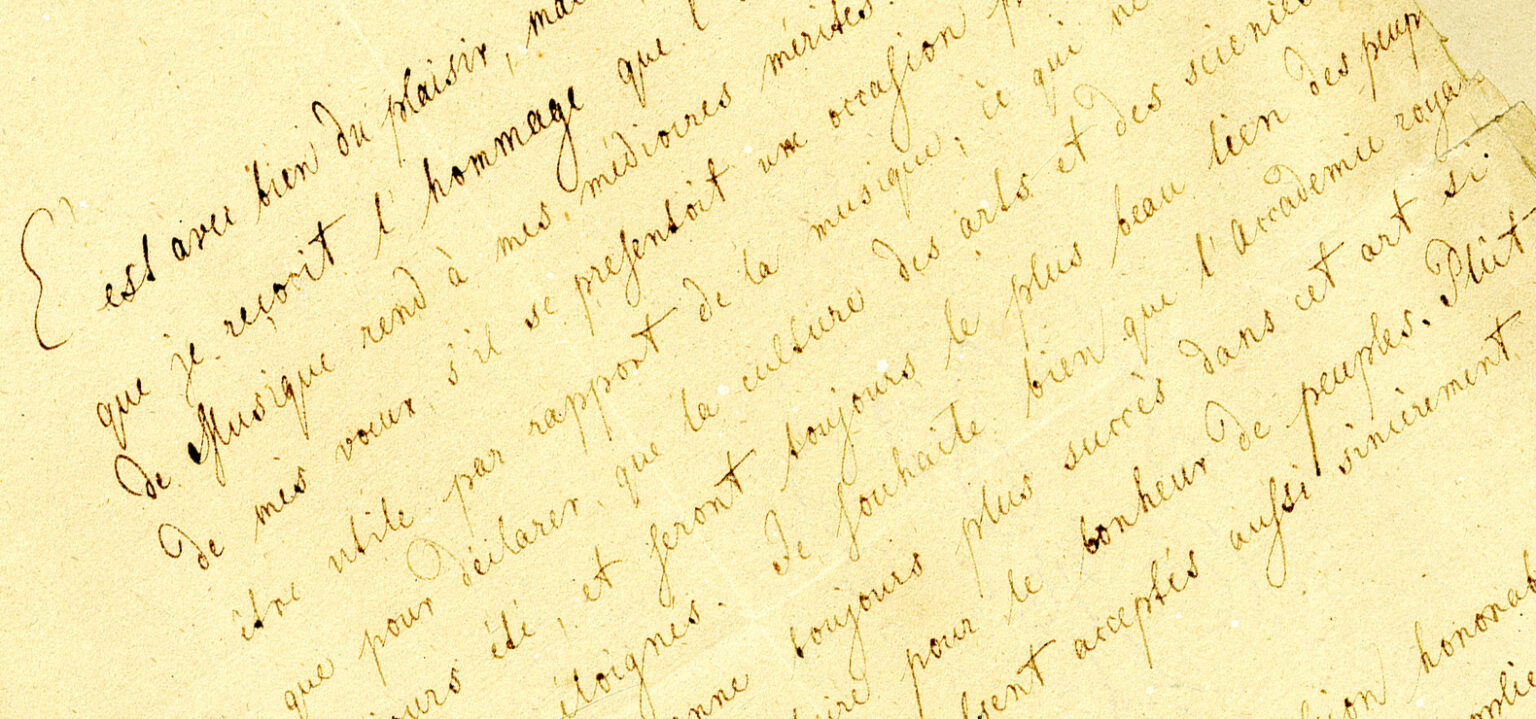 C'est avec bien du plaisir, ma
que je reçoit l'hommage que l
de Musique rend à mes médiocres mérites.
de mes vœux, s'il se presentoit une occasion p
être utile par rapport de la musique; ce qui ne
que pour déclarer, que la culture des arts et des scienc
ours été, et seront toujours le plus beau lien des peup
éloignés. Je souhaite bien que l'Accademie roya
enne toujours plus succès dans cet art si
ire pour le bonheur de peuples. Plût
sent acceptés aussi sincèrement
ion honorab